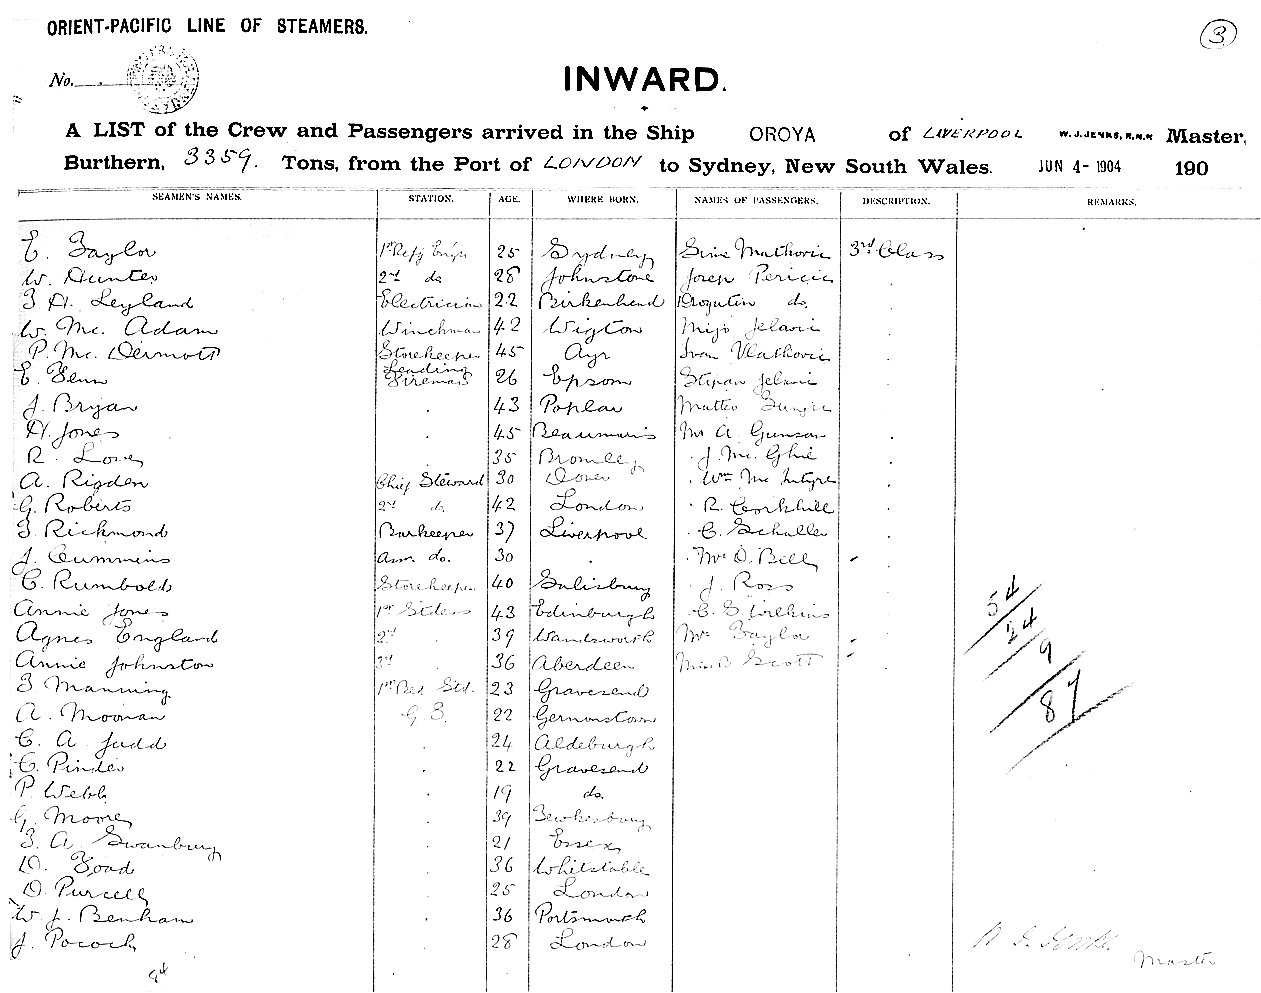 ORIENT-PACIFIC LINE OF STEAMERS.
3
No.
INWARD.
A LIST of the Crew and Passengers arrived in the Ship OROYA of LIVERPOOL W. J. JENKS, R.N.R Master,
Burthern, 3359. Tons, from the Port of LONDON to Sydney, New South Wales. JUN 4- 1904 190
SEAMEN'S NAMES. STATION. AGE. WHERE BORN. NAMES OF PASSENGERS. DESCRIPTION. REMARKS.
E. Taylor 1st Refg Engr 25 Sydney Mathovic 3rd Class
W. Hunter 2nd do 28 Johnstone Josep Pericic
F H. Leyland Electrician 22 Birkenhead do.
W. Mc. Adam Winchman 42 Wigton Mijo Jelavic
P. Mc. Dermott Storekeeper 45 Ayr Ivan Vlathovic
E. Fenn Leading Fireman 26 Epsom Stipan Jelavic
J. Bryan . 43 Poplar Matteo
H. Jones . 45 Beaumaris Mr A Gunson
R. Love 35 Bromley . J. Mc. Ghie
A. Rigden Chief Steward 30 Dover . Wm Mc Intyre
G. Roberts 2nd do 42 London . R. Corkhill
F. Richmond Barkeeper 37 Liverpool . C. Schuller
J. Cummins Assn do. 30 . . Mrs D. Bell
C. Rumbold Storekeeper 40 Salisbury . J. Ross
Annie Jones 1st Stdess 43 Edinburgh . C. S Wilkins
Agnes England 2nd . 39 Wandsworth Mrs Taylor
Annie Johnston 3rd . 36 Aberdeen Miss B Scott
F Manning 1st Bed Std. 23 Gravesend
A. Moonan G. S. 22
C. A Judd . 24 Aldeburgh
C. Pinder . 22 Gravesend
P. Webb . 19 do.
G. Moore . 39 Tewkesbury
F. A. Swanbury . 21 Essex
D. Foad . 36 Whitstable
D. Purcell . 25 London
W J. Benham . 36 Portsmouth
J. Pocock . 28 London
54
24
9
87
W. J. Jenks
Master